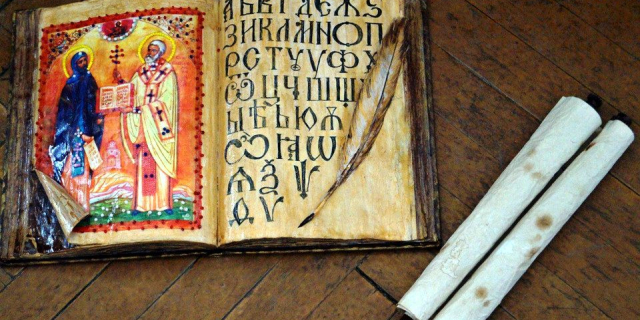 АБВГДЕЖЅ
ЗИКЛМНОП
РСТУУФХ
ѾЦЧШЩ
ЫЬѢЮѪ
ѼꙖѠ
ѦѮѰ
ѲѴ